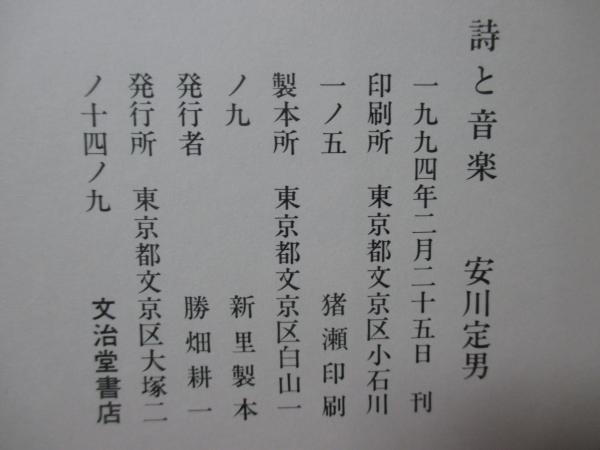 詩と音楽　安川定男
一九九四年二月二十五日　刊
印刷所　東京都文京区小石川
一ノ五　猪瀬印刷
製本所　東京都文京区白山一
ノ九　新里製本
発行者　勝畑耕一
発行所　東京都文京区大塚二
ノ十四ノ九　文治堂書店